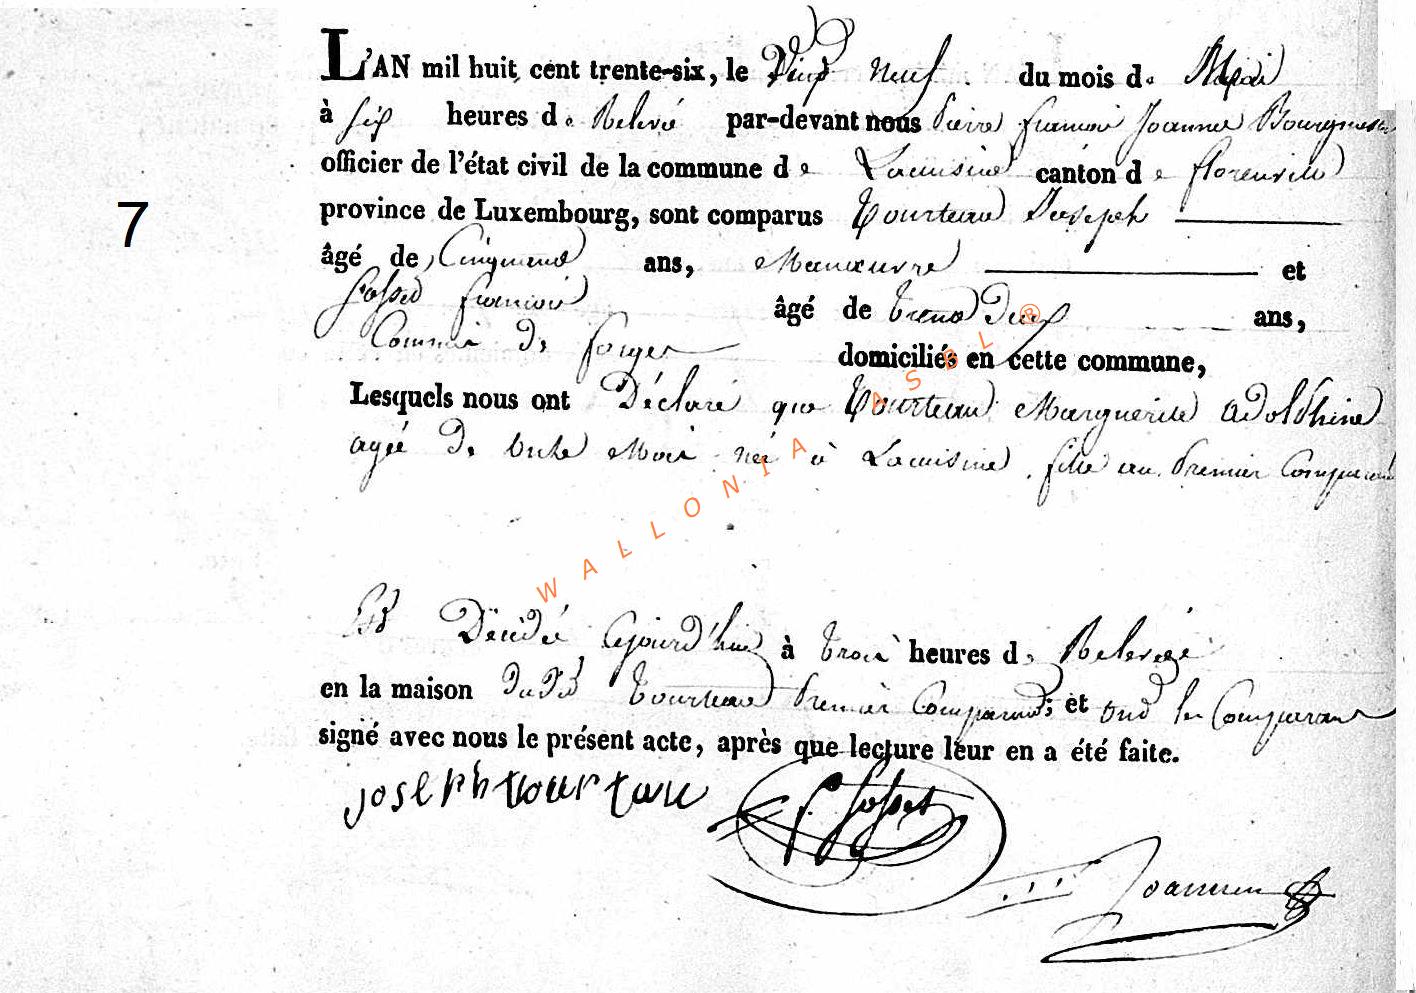 L'AN mil huit cent trente-six, le Vingt neuf du mois de Mai
à six heures de Relevé par-devant nous Pierre francois Joannes Bourgmestre
officier de l'état civil de la commune de Lacuisine canton de florenville
province de Luxembourg, sont comparus Tourteau Joseph
âgé de Cinquante ans, Manœuvre et
Sosset francois âgé de trente Deux ans,
Commis de forges domiciliés en cette commune,
Lesquels nous ont Déclaré que Tourteau Marguerite Adolphine
agée de Mois née à Lacuisine fille au premier Comparant
Est Décédé à trois heures de Relevée
en la maison dudit Tourteau premier Comparant; et ont les Comparant
signé avec nous le présent acte, après que lecture leur en a été faite.
joseph tourtau f. Sosset
Joannes
7
WALLONIA ASBL ®